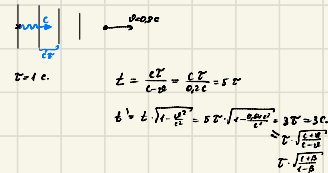 c v=0,8c
cτ
τ=1 c.
t = cτ/(c-v) = cτ/0,2c = 5τ
t' = t·√(1-v²/c²) = 5τ·√(1-0,64c²/c²) = 3τ = 3c.
= τ·√((c+v)/(c-v))
τ·√((1+β)/(1-β))